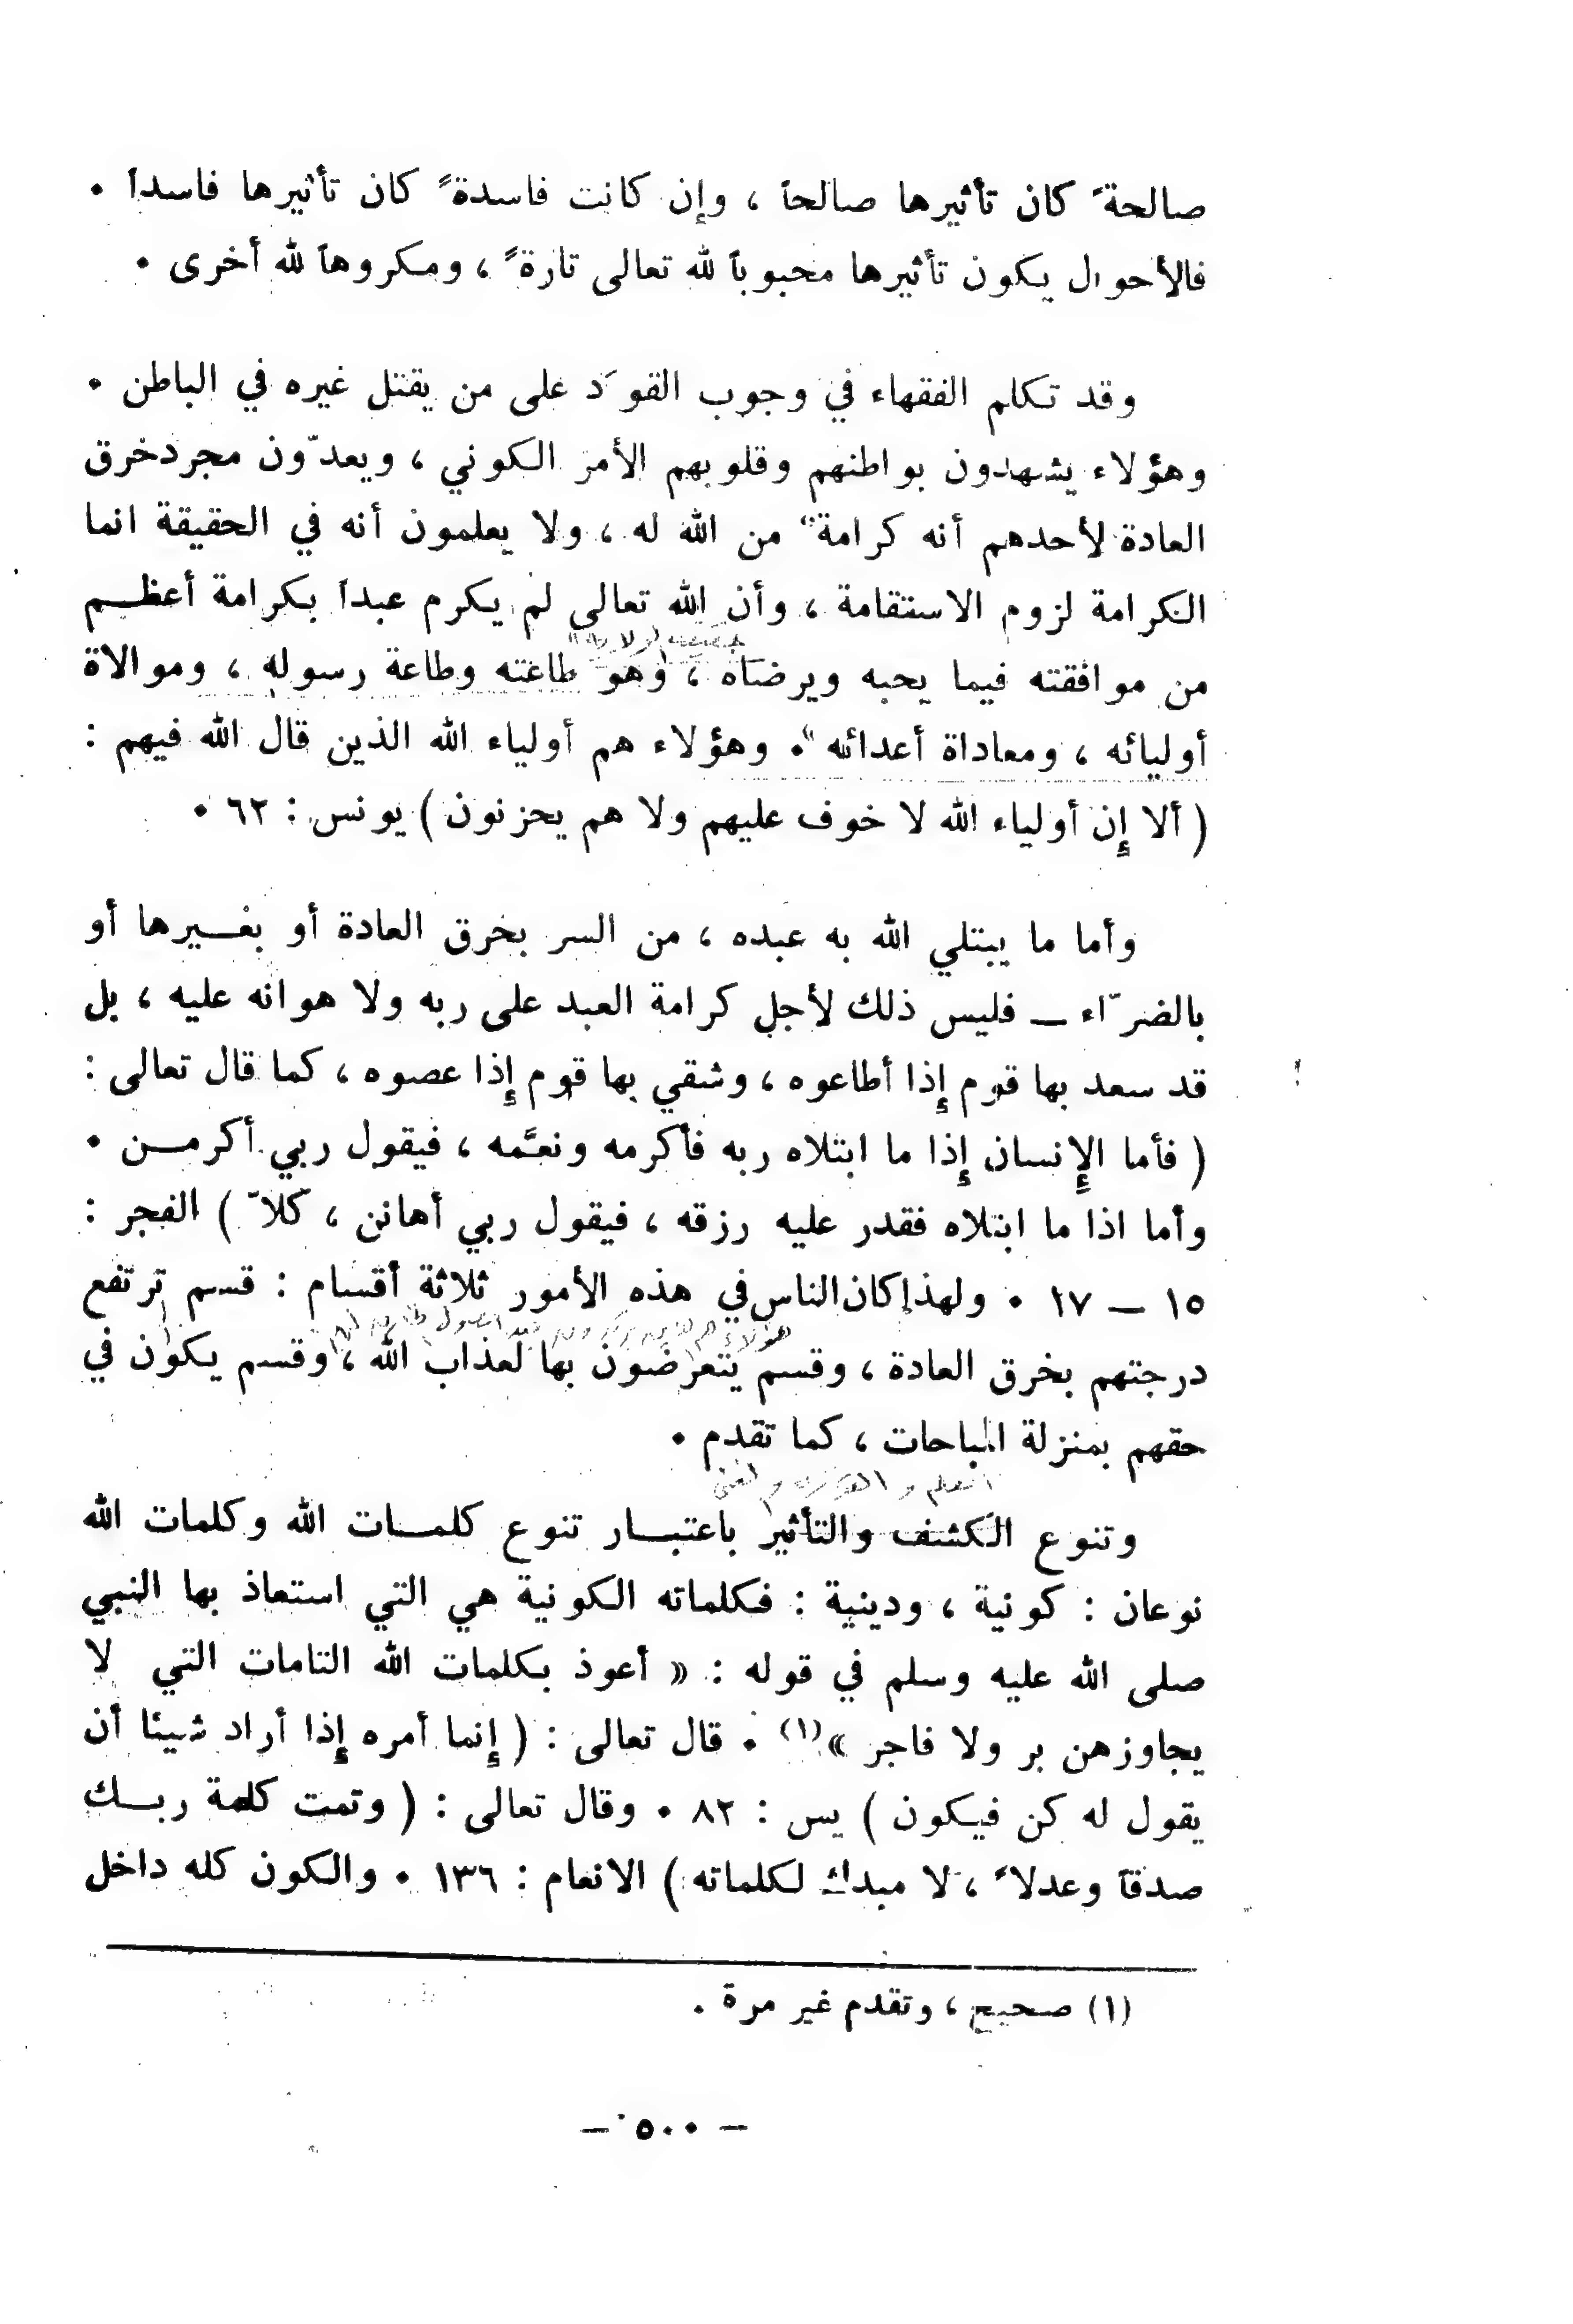 صالحة ً كان تأثيرها صالحاً ، وإن كانت فاسدة ً كان تأثيرها فاسداً ٠
فالأحوال يكون تأثيرها محبوباً لله تعالى تارة ً ، ومكروهاً لله أخرى ٠
وقد تكلم الفقهاء في وجوب القوَد على من يقتل غيره في الباطن ٠
وهؤلاء يشهدون بواطنهم وقلوبهم الأمر الكوني ، ويعدّون مجردخرق
العادة لأحدهم أنه كرامة ٌ من الله له ، ولا يعلمون أنه في الحقيقة انما
الكرامة لزوم الاستقامة ، وأن الله تعالى لم يكرم عبداً بكرامة أعظـم
من موافقته فيما يحبه ويرضاه ، وهو طاعته وطاعة رسوله ، وموالاة
أوليائه ، ومعاداة أعدائه ٠ وهؤلاء هم أولياء الله الذين قال الله فيهم :
( ألا إِن أولياء الله لا خوف عليهم ولا هم يحزنون ) يونس : ٦٢ ٠
وأما ما يبتلي الله به عبده ، من السر بخرق العادة أو بغـيرها أو
بالضرّاء ــ فليس ذلك لأجل كرامة العبد على ربه ولا هوانه عليه ، بل
قد سعد بها قوم إِذا أطاعوه ، وشقي بها قوم إِذا عصوه ، كما قال تعالى :
( فأما الإِنسان إِذا ما ابتلاه ربه فأكرمه ونعَّمه ، فيقول ربي أكرمـن ٠
وأما اذا ما ابتلاه فقدر عليه رزقه ، فيقول ربي أهانن ، كلاّ ) الفجر :
١٥ ــ ١٧ ٠ ولهذا كان الناس في هذه الأمور ثلاثة أقسام : قسم ترتفع
درجتهم بخرق العادة ، وقسم يتعرضون بها لعذاب الله ، وقسم يكون في
حقهم بمنزلة المباحات ، كما تقدم ٠
وتنوع الكشف والتأثير باعتبـار تنوع كلمـات الله وكلمات الله
نوعان : كونية ، ودينية : فكلماته الكونية هي التي استعاذ بها النبي
صلى الله عليه وسلم في قوله : « أعوذ بكلمات الله التامات التي لا
يجاوزهن بر ولا فاجر »(١) ٠ قال تعالى : ( إِنما أمره إِذا أراد شيئا أن
يقول له كن فيكون ) يس : ٨٢ ٠ وقال تعالى : ( وتمت كلمة ربـك
صدقاً وعدلا ً ، لا مبدل لكلماته ) الانعام : ١٣٦ ٠ والكون كله داخل
(١) صحيح ، وتقدم غير مرة .
ــ ٥٠٠ ــ